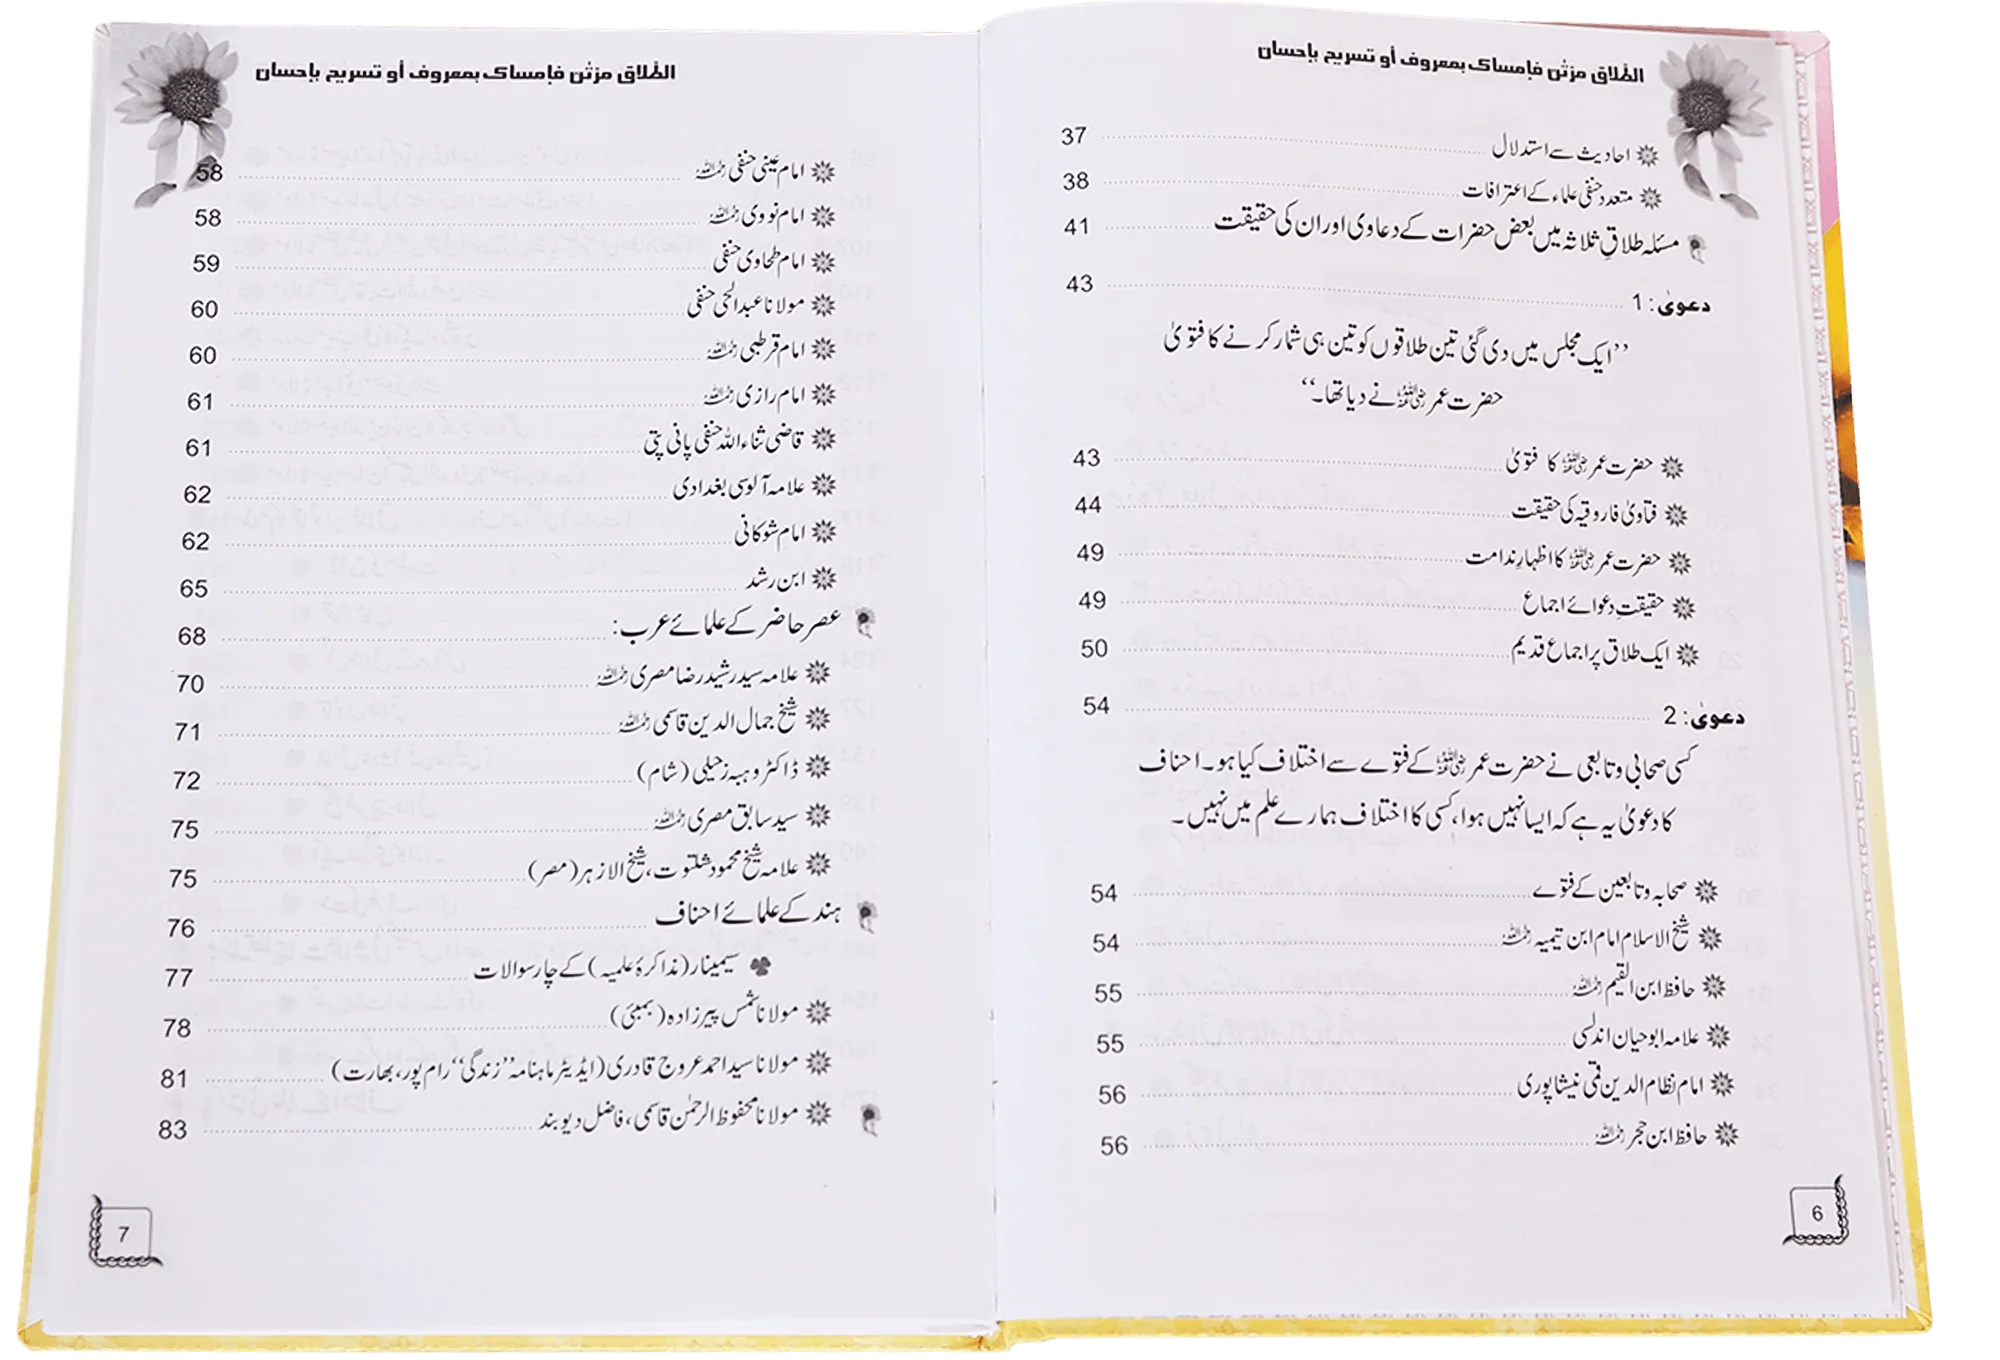 الطلاق مرتٰن فإمساك بمعروف أو تسريح بإحسان
احادیث سے استدلال 37
متعدد حنفی علماء کے اعترافات 38
مسئلہ طلاقِ ثلاثہ میں بعض حضرات کے دعاوی اور ان کی حقیقت 41
دعویٰ: 1 43
’’ایک مجلس میں دی گئی تین طلاقوں کو تین ہی شمار کرنے کا فتویٰ
حضرت عمر رضی اللہ عنہ نے دیا تھا۔‘‘
حضرت عمر رضی اللہ عنہ کا فتویٰ 43
فتاویٰ فاروقیہ کی حقیقت 44
حضرت عمر رضی اللہ عنہ کا اظہارِ ندامت 49
حقیقتِ دعوائے اجماع 49
ایک طلاق پر اجماع قدیم 50
دعویٰ: 2 54
کسی صحابی و تابعی نے حضرت عمر رضی اللہ عنہ کے فتوے سے اختلاف کیا ہو۔ احناف
کا دعویٰ یہ ہے کہ ایسا نہیں ہوا، کسی کا اختلاف ہمارے علم میں نہیں۔
صحابہ و تابعین کے فتوے 54
شیخ الاسلام امام ابن تیمیہ رحمہ اللہ 54
حافظ ابن القیم رحمہ اللہ 55
علامہ ابو حیان اندلسی 55
امام نظام الدین قمی نیشاپوری 56
حافظ ابن حجر رحمہ اللہ 56
6
الطلاق مرتٰن فإمساك بمعروف أو تسريح بإحسان
امام عینی حنفی رحمہ اللہ 58
امام نووی رحمہ اللہ 58
امام طحاوی حنفی 59
مولانا عبدالحی حنفی 60
امام قرطبی رحمہ اللہ 60
امام رازی رحمہ اللہ 61
قاضی ثناء اللہ حنفی پانی پتی 61
علامہ آلوسی بغدادی 62
امام شوکانی 62
ابن رشد 65
عصر حاضر کے علمائے عرب: 68
علامہ سید رشید رضا مصری رحمہ اللہ 70
شیخ جمال الدین قاسمی رحمہ اللہ 71
ڈاکٹر وہبہ زحیلی (شام) 72
سید سابق مصری رحمہ اللہ 75
علامہ شیخ محمود شلتوت، شیخ الازہر (مصر) 75
ہند کے علمائے احناف 76
سیمینار (مذاکرۂ علمیہ) کے چار سوالات 77
مولانا شمس پیرزادہ (بمبئی) 78
مولانا سید احمد عروج قادری (ایڈیٹر ماہنامہ ’’زندگی‘‘ رام پور، بھارت) 81
مولانا محفوظ الرحمٰن قاسمی، فاضل دیوبند 83
7